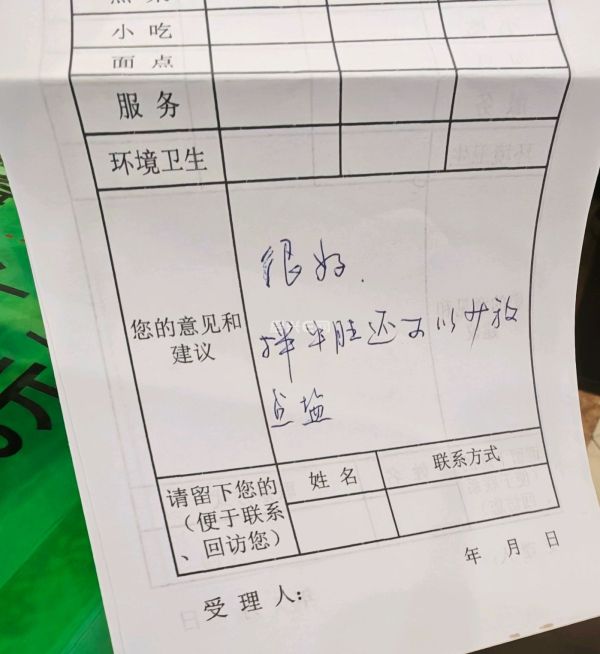 小吃
面点
服务
环境卫生
您的意见和
建议
很好.
拌牛肚还可以少放
点盐
请留下您的
(便于联系
、回访您)
姓名
联系方式
年 月 日
受理人: